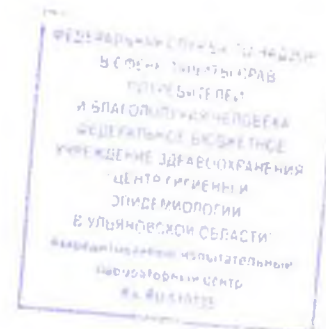 ФЕДЕРАЛЬНАЯ СЛУЖБА ПО НАДЗОРУ
В СФЕРЕ ЗАЩИТЫ ПРАВ
ПОТРЕБИТЕЛЕЙ
И БЛАГОПОЛУЧИЯ ЧЕЛОВЕКА
ФЕДЕРАЛЬНОЕ БЮДЖЕТНОЕ
УЧРЕЖДЕНИЕ ЗДРАВООХРАНЕНИЯ
ЦЕНТР ГИГИЕНЫ И
ЭПИДЕМИОЛОГИИ
В УЛЬЯНОВСКОЙ ОБЛАСТИ
Аккредитованный испытательный
лабораторный центр